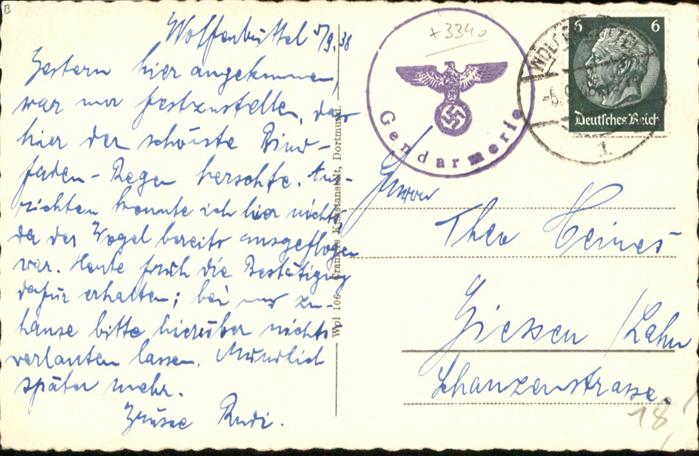 B
Wolfenbüttel 5/9.38
Gestern hier angekommen,
war nur festzustellen, dass
hier der schönste Bind-
faden-Regen herrschte. Aus-
richten konnte ich hier nichts
da der Vogel bereits ausgeflogen
war. Heute früh die Bestätigung
dafür erhalten; bei uns zu-
hause bitte hierüber nichts
verlauten lassen. Mündlich
später mehr.
Grüsse Rudi.
Wol 106 Kunstanstalt, Dortmund.
+3340
Gendarmerie
6 6
Deutsches Reich
1
Herrn
Theo Heines
Giessen/Lahn
Schanzenstrasse.
18